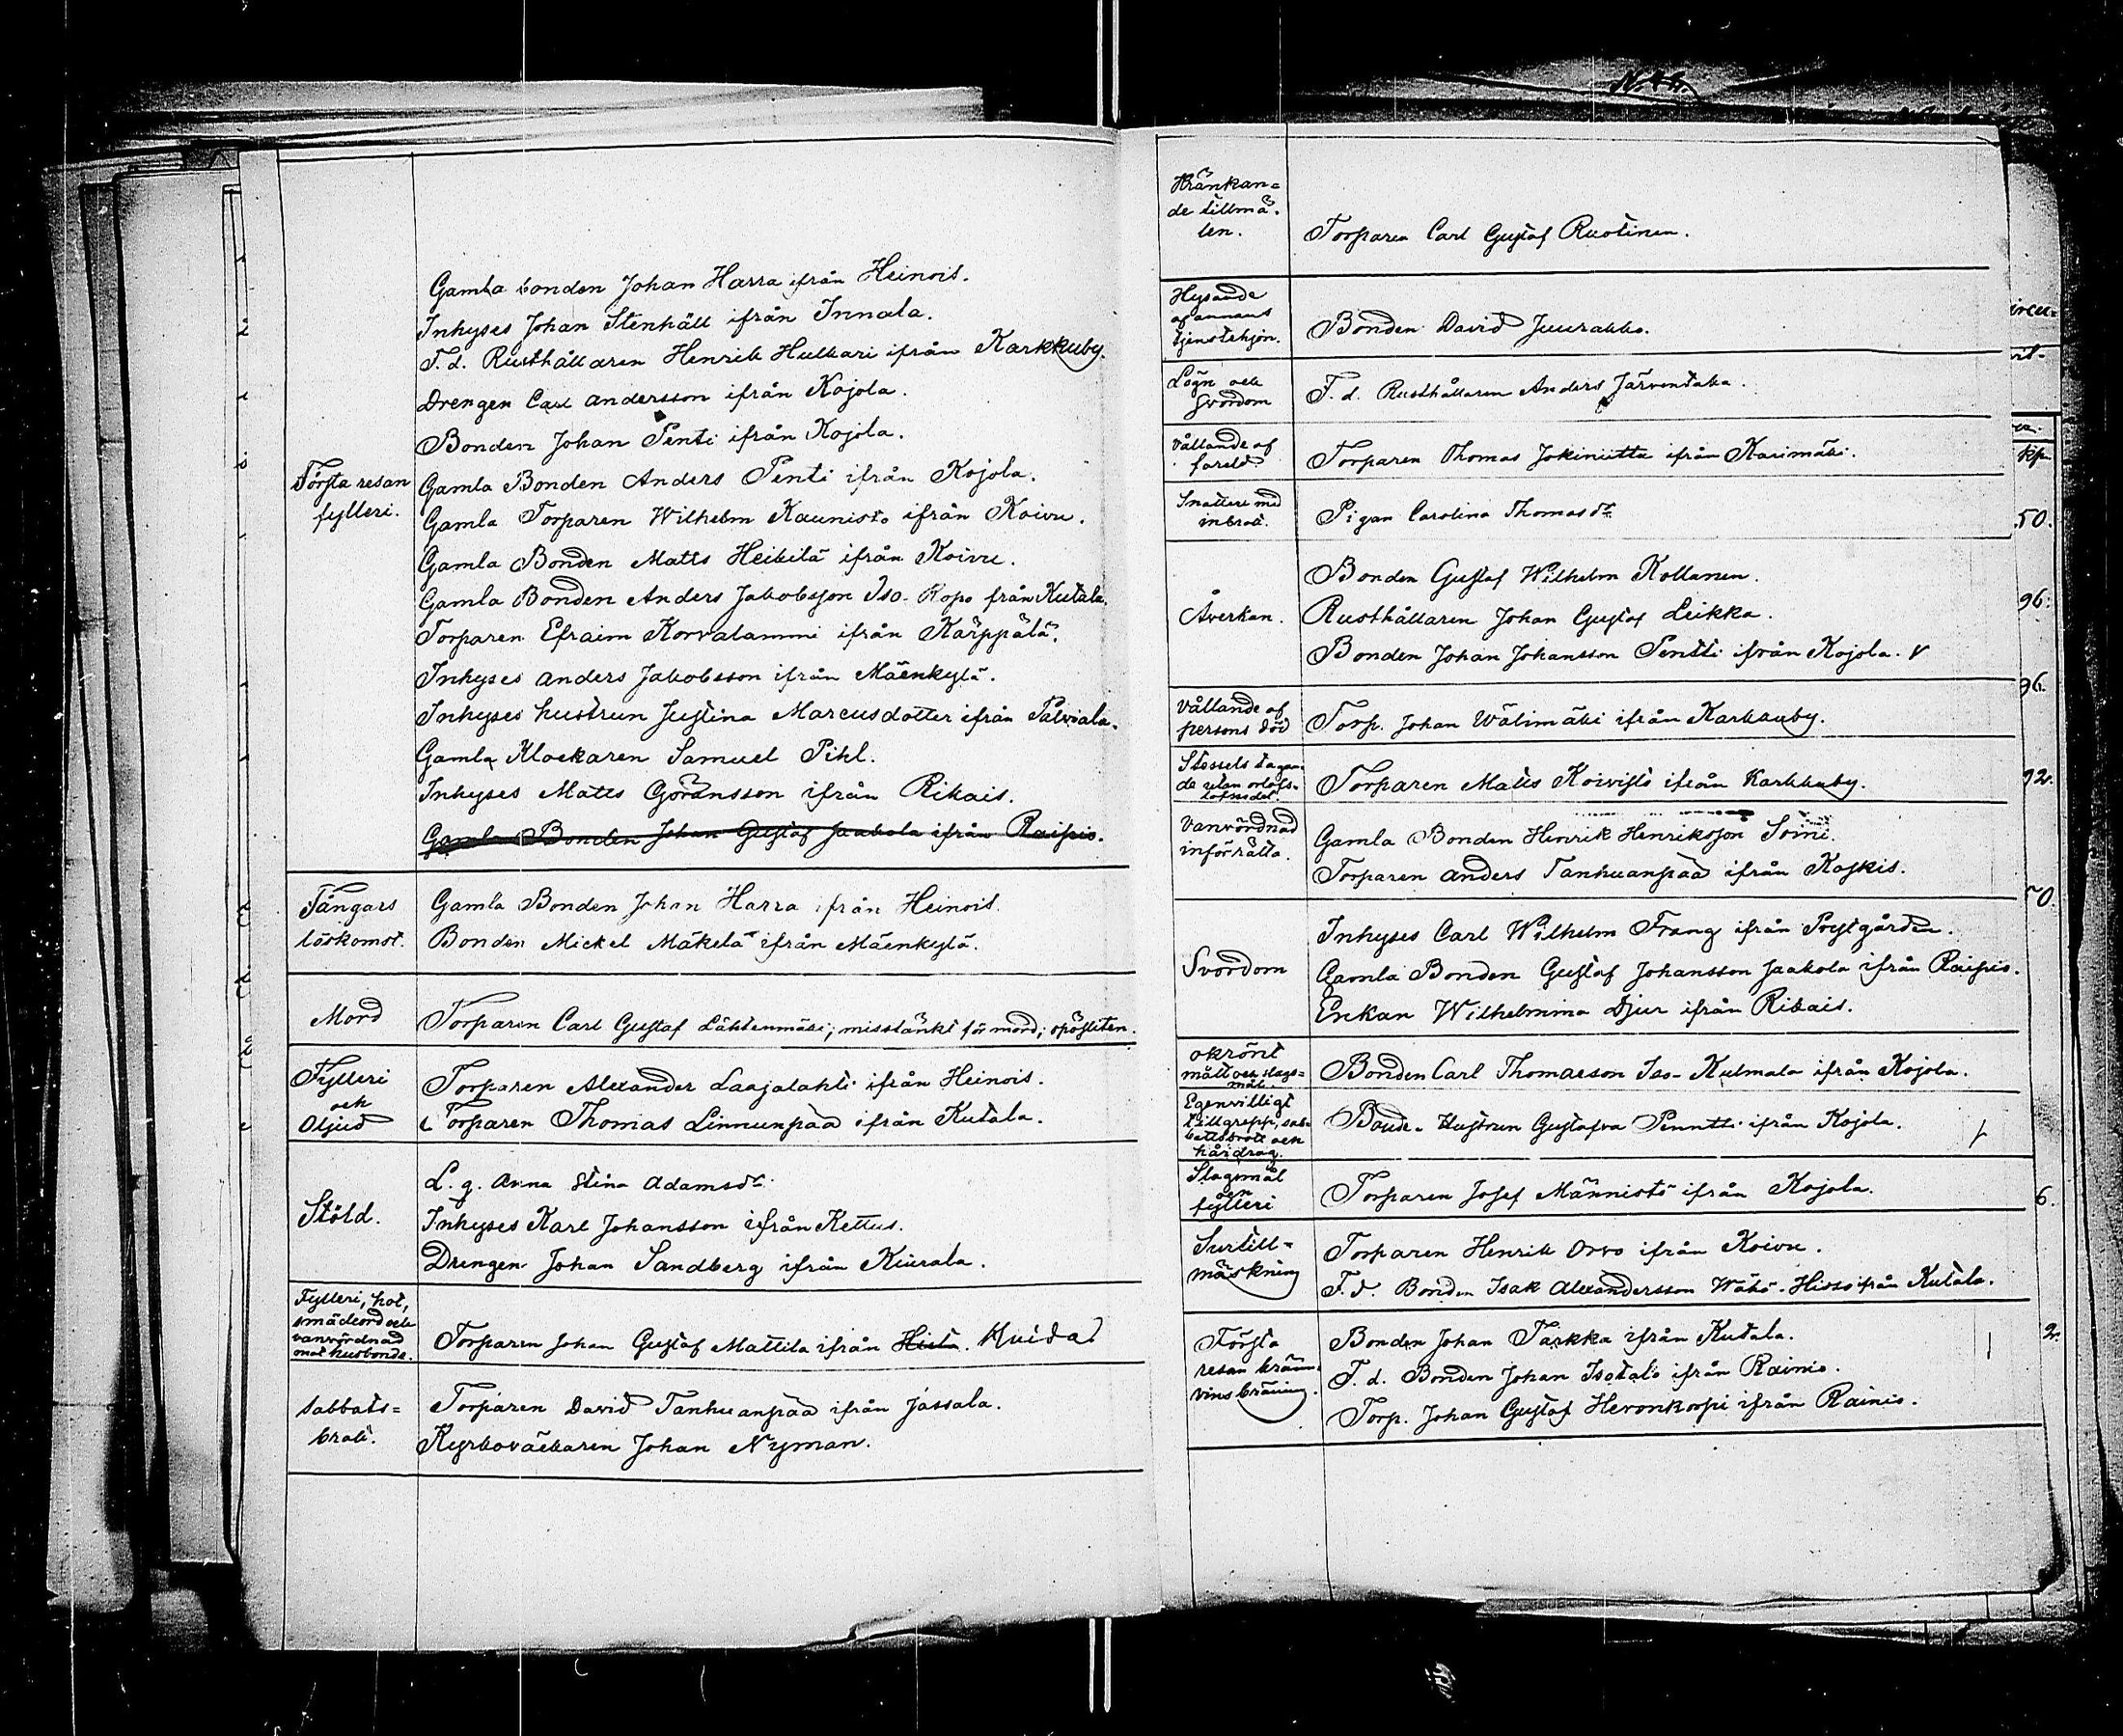 Första resan
fylleri.
Gamla bonden Johan Harra ifrån Heinois.
Inhyses Johan Stenhäll ifrån Innala.
F.d. Rusthållaren Henrik Hulkari ifrån Karkkuby.
Drengen Carl Andersson ifrån Kojola.
Bonden Johan Penti ifrån Kojola.
Gamla Bonden Anders Penti ifrån Kojola.
Gamla Torparen Wilhelm Kaunisto ifrån Koivu.
Gamla Bonden Matts Heikilä ifrån Koivu.
Gamla Bonden Anders Jakobsson Iso-Ropo från Kutala.
Torparen Efraim Korvalammi ifrån Kärppälä.
Inhyses Anders Jakobsson ifrån Mäenkylä.
Inhyses hustrun Justina Marcusdotter ifrån Pälviala.
Gamla Klockaren Samuel Pihl.
Inhyses Matts Göransson ifrån Rikais.
Gamla Bonden Johan Gustaf Jaakola ifrån Raipio.
Fångars
löskomst.
Gamla Bonden Johan Harra ifrån Heinois.
Bonden Mickel Mäkelä ifrån Mäenkylä.
Mord
Torparen Carl Gustaf Lähtenmäki; misstänkt för mord;
Fylleri
och
Oljud
Torparen Alexander Laajalahti ifrån Heinois.
Torparen Thomas Linnunpää ifrån Kutala.
Stöld.
L. q. Anna Stina Adamsdr.
Inhyses Karl Johansson ifrån Kettus.
Drengen Johan Sandberg ifrån Kiurala.
Fylleri, hot,
smädeord och
vanvördnad
mot husbonde.
Torparen Johan Gustaf Mattila ifrån Huida
Sabbats-
brott.
Torparen David Tanhuanpää ifrån Jässala.
Kyrkoväktaren Johan Nyman.
Kränkan-
de tillmä-
len.
Torparen Carl Gustaf Ruotinen.
Hysande
af annans
tjenstehjon.
Bonden David Juurakko.
Lögn och
Svordom
F.d. Rusthållaren Anders Järventaka.
Vållande af
fareld
Torparen Thomas Jokiniitta ifrån Kauimäki.
Snatteri med
inbrott.
Pigan Carolina Thomasdr
Åverkan.
Bonden Gustaf Wilhelm Kollanen.
Rusthållaren Johan Gustaf Leikka.
Bonden Johan Johansson Pentti ifrån Kojola. V
Vållande af
persons död
Torp. Johan Wälimäki ifrån Karkkuby.
de utan orlofs-
Torparen Matts Koivisto ifrån Karkkuby.
Vanvördnad
inför rätta.
Gamla Bonden Henrik Henriksson Soini.
Torparen Anders Tanhuanpää ifrån Koskis.
Svordom
Inhyses Carl Wilhelm Frang ifrån Prestgården.
Gamla Bonden Gustaf Johansson Jaakola ifrån Raipio.
Enkan Wilhelmina Djur ifrån Rikais.
Okrönt
mått och slags-
mål.
Bonden Carl Thomasson Iso-Kulmala ifrån Kojola.
Egenvilligt
tillgrepp, sab-
batsbrott och
hårdrag.
Bonde-Hustrun Gustafva Penntti ifrån Kojola.
Slagsmål
och
fylleri
Torparen Josef Männistö ifrån Kojola.
Surtill-
mäskning
Torparen Henrik Orvo ifrån Koivu.
F.d. Bonden Isak Alexandersson Wähä-Hisso från Kutala.
Första
resan bränn-
vins bränning.
Bonden Johan Tarkka ifrån Kutala.
F.d. Bonden Johan Isotalo ifrån Rainio.
Torp. Johan Gustaf Hevonkorpi ifrån Rainio.
kp.
50.
96.
96.
92.
70.
6.
2.